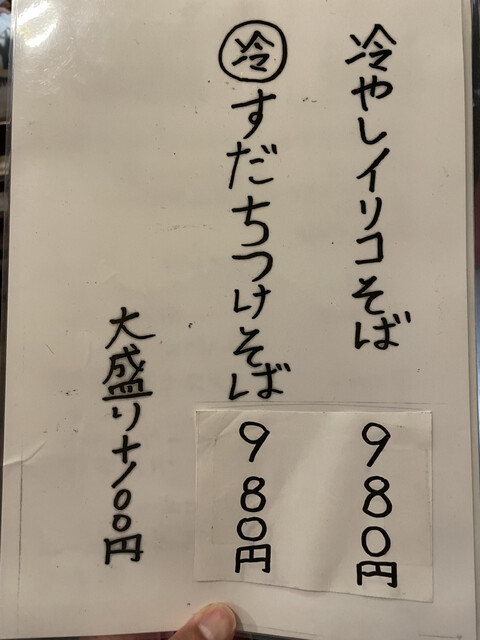 冷やしイリコそば 980円
㋷すだちつけそば 980円
大盛り+100円